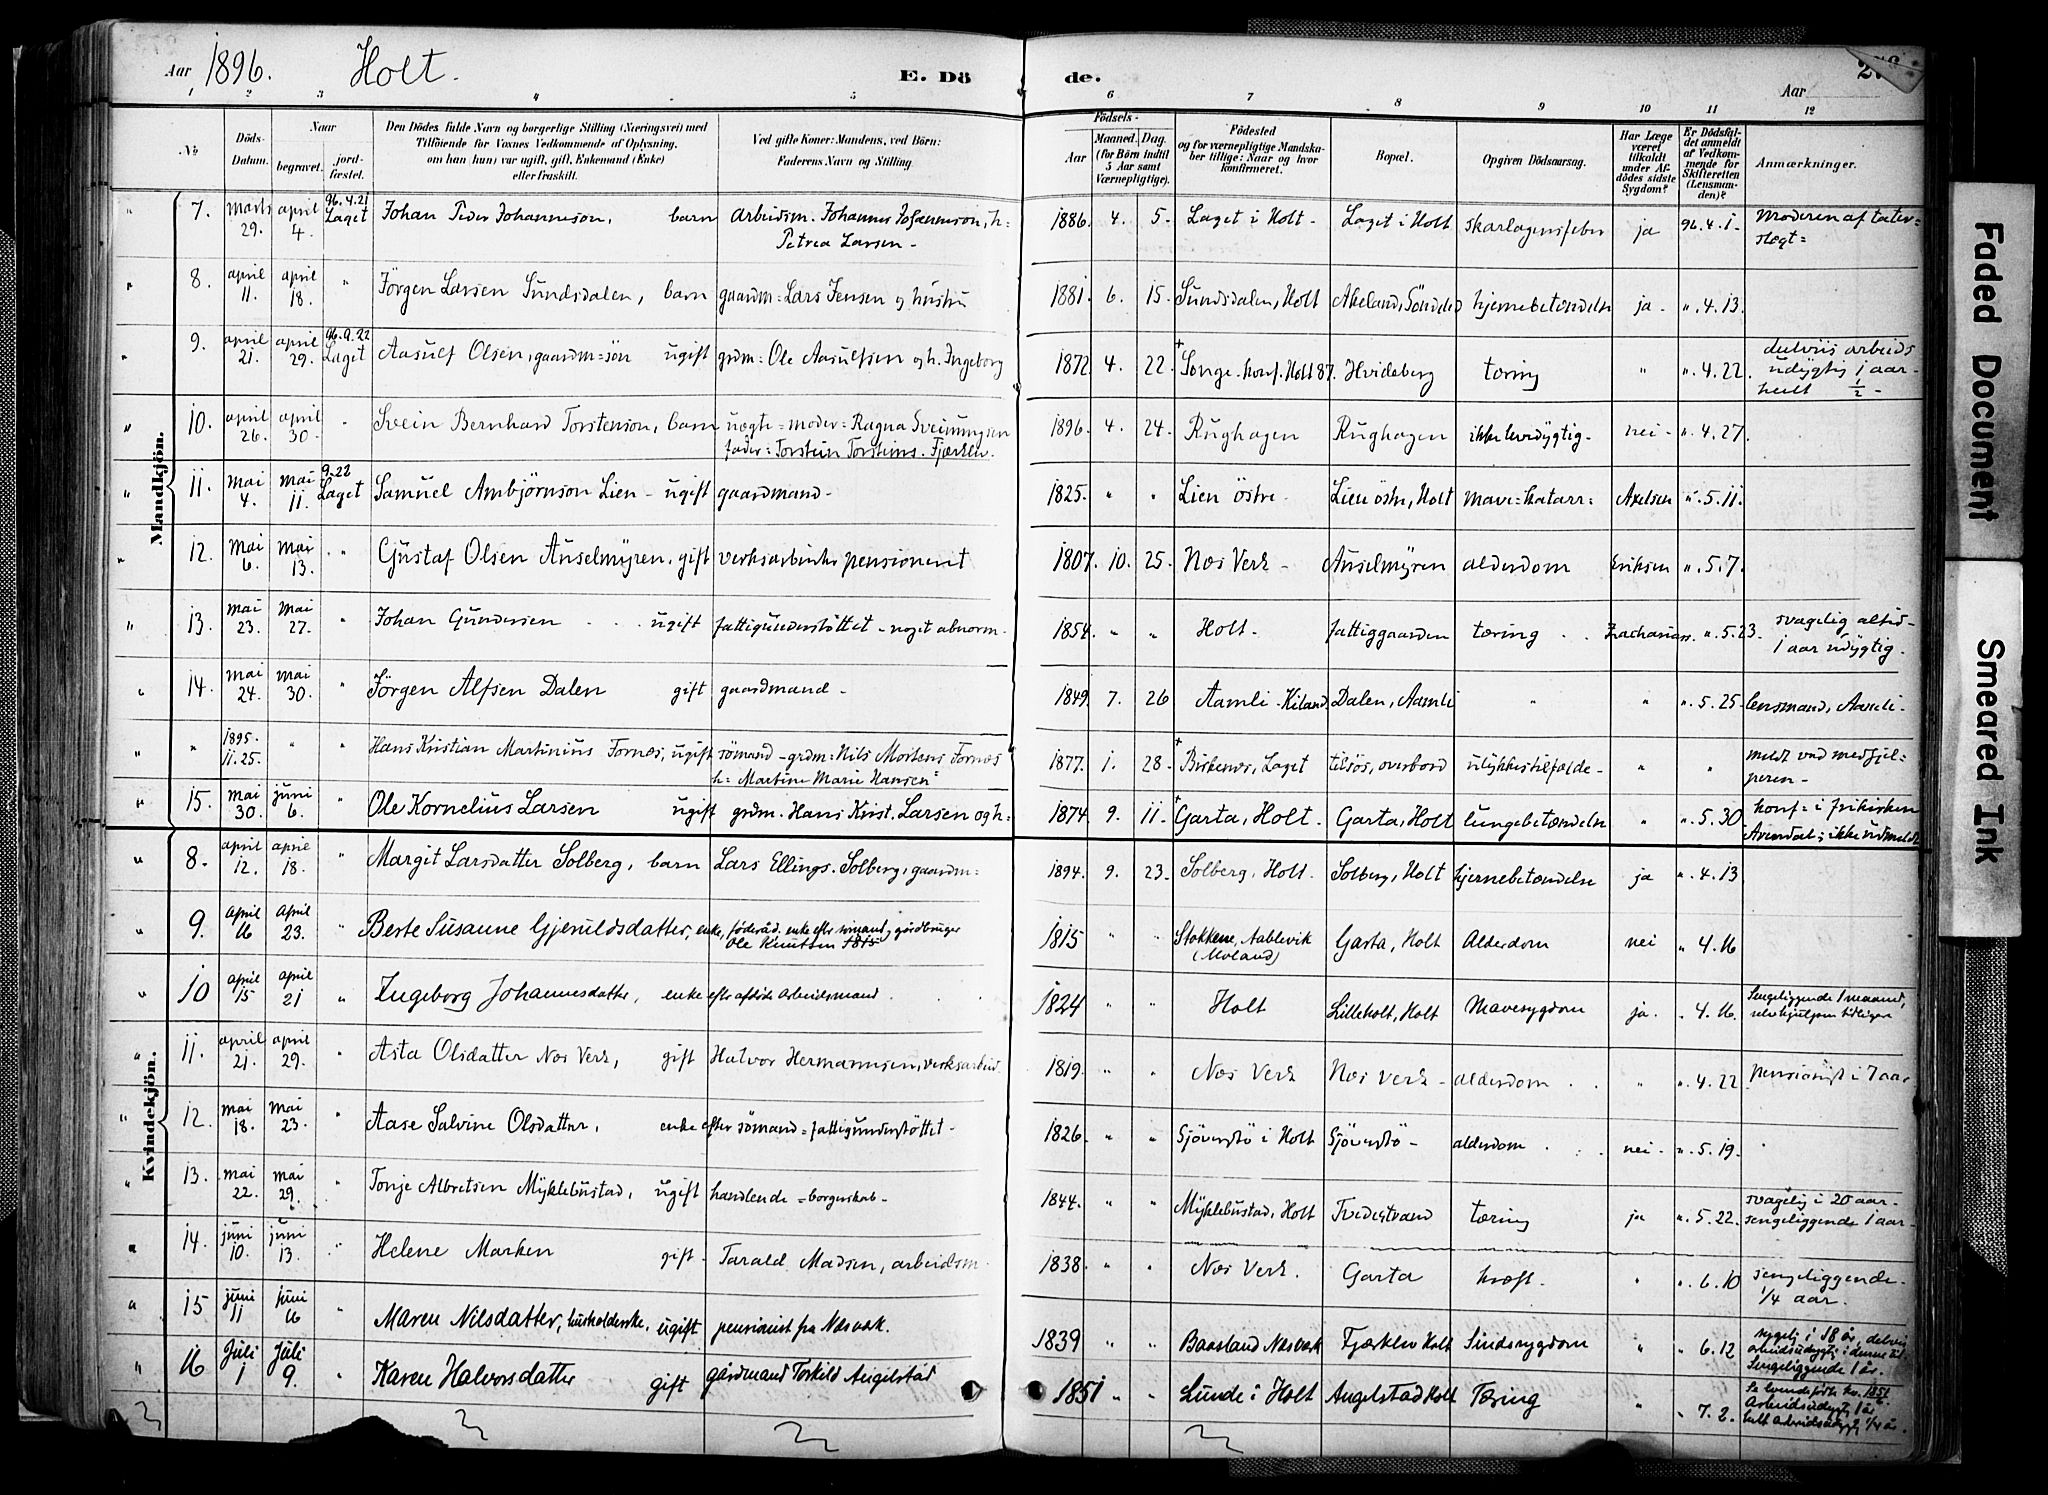 Aar 1896. Holt. E. Dö de. Aar
1 2 3 4 5 6 7 8 9 10 11 12
No Döds-Datum. Naar begravet. jordfæstet. Den Dödes fulde Navn og borgerlige Stilling (Næringsvei) med Tilföiende for Voxnes Vedkommende af Oplysning, om han (hun) var ugift, gift, Enkemand (Enke) eller fraskilt. Ved gifte Koner: Mandens, ved Börn: Faderens Navn og Stilling. Födsels- Aar Maaned. Dag. (for Börn indtil 5 Aar samt Værnepligtige). Födested og for værnepligtige Mandskaber tillige: Naar og hvor konfirmeret. Bopæl. Opgiven Dödsaarsag. Har Læge været tilkaldt under Afdödes sidste Sygdom? Er Dödsfaldet anmeldt af Vedkommende for Skifteretten (Lensmanden)? Anmærkninger.
Mandkjön.
" 7. marts 29. april 4. 96.4.21 Laget Johan Peder Johanneson, barn arbeidsm. Johannes Johannesson, h. Petrea Larsen - 1886. 4. 5. Laget i Holt - Laget i Holt skarlagensfeber ja 96.4.1. Moderen af taterslegt=
" 8. april 11. april 18. " Jörgen Larsen Sundsdalen, barn gaardm= Lars Jensen og hustru 1881. 6. 15. Sundsdalen, Holt Akeland, Söndeled hjernebetændelse ja - ". 4. 13.
" 9. april 21. april 29. 96.9.22 Laget Aasulf Olsen, gaardm=sön ugift grdm= Ole Aasulfsen og h. Ingeborg 1872. 4. 22. Songe - konf. Holt 87. Hvideberg tæring " ". 4. 22. delviis arbeids udygtig 1 aar - heelt 1/2 -
" 10. april 26. april 30. " Svein Bernhard Torstenson, barn uægte= moder= Ragna Sveinungsen fader= Torstein Torsteins. Fjærkleiv. 1896. 4. 24. Rughagen Rughagen ikke levedygtig - nei - ". 4. 27.
" 11. mai 4. mai 11. 9.22 Laget Samuel Ambjörnson Lien - ugift gaardmand - 1825. " " Lien östre - Lien östre, Holt mave=katarr= Axelsen ". 5. 11.
" 12. Mai 6. Mai 13. " Gustaf Olsen Anselmyren, gift verksarbeider pensionent 1807. 10. 25. Næs Verk - Anselmyren alderdom Eriksen ". 5. 7.
" 13. mai 23. mai 27. " Johan Gundersen ugift fattigunderstöttet - noget abnorm - 1854. " " Holt - fattiggaarden tæring Zacharias. ". 5. 23. svagelig altid - 1 aar udygtig -
" 14. mai 24. mai 30. " Jörgen Alfsen Dalen gift gaardmand - 1849. 7. 26 Aamli - Kiland Dalen, Aamli " " ". 5. 25. lensmand, Aamli -
" " 1895. 11. 25. " " Hans Kristian Martinius Fornæs, ugift sömand - grdm= Nils Mortens. Fornæs h= Martine Marie Hansen= 1877. 1. 28. Birkenes, Laget tilsös, overbord ulykkestilfælde - " " meldt ved medhjelperen -
" 15. mai 30. juni 6. " Ole Kornelius Larsen ugift grdm. Hans Krist. Larsen og h= 1874. 9. 11. Garta, Holt. Garta, Holt lungebetændelse " ". 5. 30 konf= i frikirken Arendal; ikke udmeldt
Kvindekjön.
" 8. april 12. april 18. " Margit Larsdatter Solberg, barn Lars Ellings. Solberg, gaardm= 1894. 9. 23. Solberg, Holt. Solberg, Holt hjernebetændelse ja ". 4. 13
" 9. April 16 April 23. " Berte Susanne Gjeruldsdatter, enke, föderåd. enke efter sömand, gårdbruger Ole Knutsen 1815 1815 " " Stokkene, Aablevik (Moland) Garta, Holt Alderdom nei " 4. 16
" 10 April 15 april 21 " Ingeborg Johannesdatter, enke efter afdöde Arbeidsmand. 1824 " " Holt Lilleholt, Holt Mavesygdom ja. . 4. 16. Sengeliggende 1 maaned, selvhjulpen tidligere
" 11. april 21. april 29. " Asta Olsdatter Næs Verk, gift Halvor Hermannsen, verksarbeid. 1819. " " Næs Verk Næs Verk - alderdom " ". 4. 22 pensionist i 7 aar
" 12. mai 18. mai 23. " Aase Salvine Olsdatter, enke efter sömand = fattigunderstöttet - 1826. " " Sjöverstö i Holt Sjöverstö - alderdom nei - ". 5. 19.
" 13. mai 22. mai 29. Tonje Albretsen Myklebustad, ugift handlende = borgerskab - 1844. " " Myklebustad, Holt Tvedestrand tæring ja ". 5. 22. svagelig i 20 aar - sengeliggende 1 aar -
" 14. juni 10. juni 13. " Helene Marken gift - Tarald Madsen, arbeidsm. 1838. " " Næs Verk. Garta kræft. " ". 6. 10 sengeliggende - 1/4 aar.
" 15 juni 11 juni 16 " Maren Nilsdatter, husholderske, ugift pensionist fra Næsverk. 1839 " " Baasland Næsverk Fjærkleiv Holt Sindssygdom " " 6. 12 sygelig i 18 år, delvis arbeidsudygtig i denne tid. Sengeliggende 1 år.
" 16 Juli 1 Juli 9. " Karen Halvorsdatter gift gårdmand Torkild Angelstad 1851 " " Lunde i Holt Angelstad Holt Tæring " " 7. 2. Arbeidsudygtig 1 år helt arbeidsudygtig 1/4 år.
Faded Document
Smeared Ink